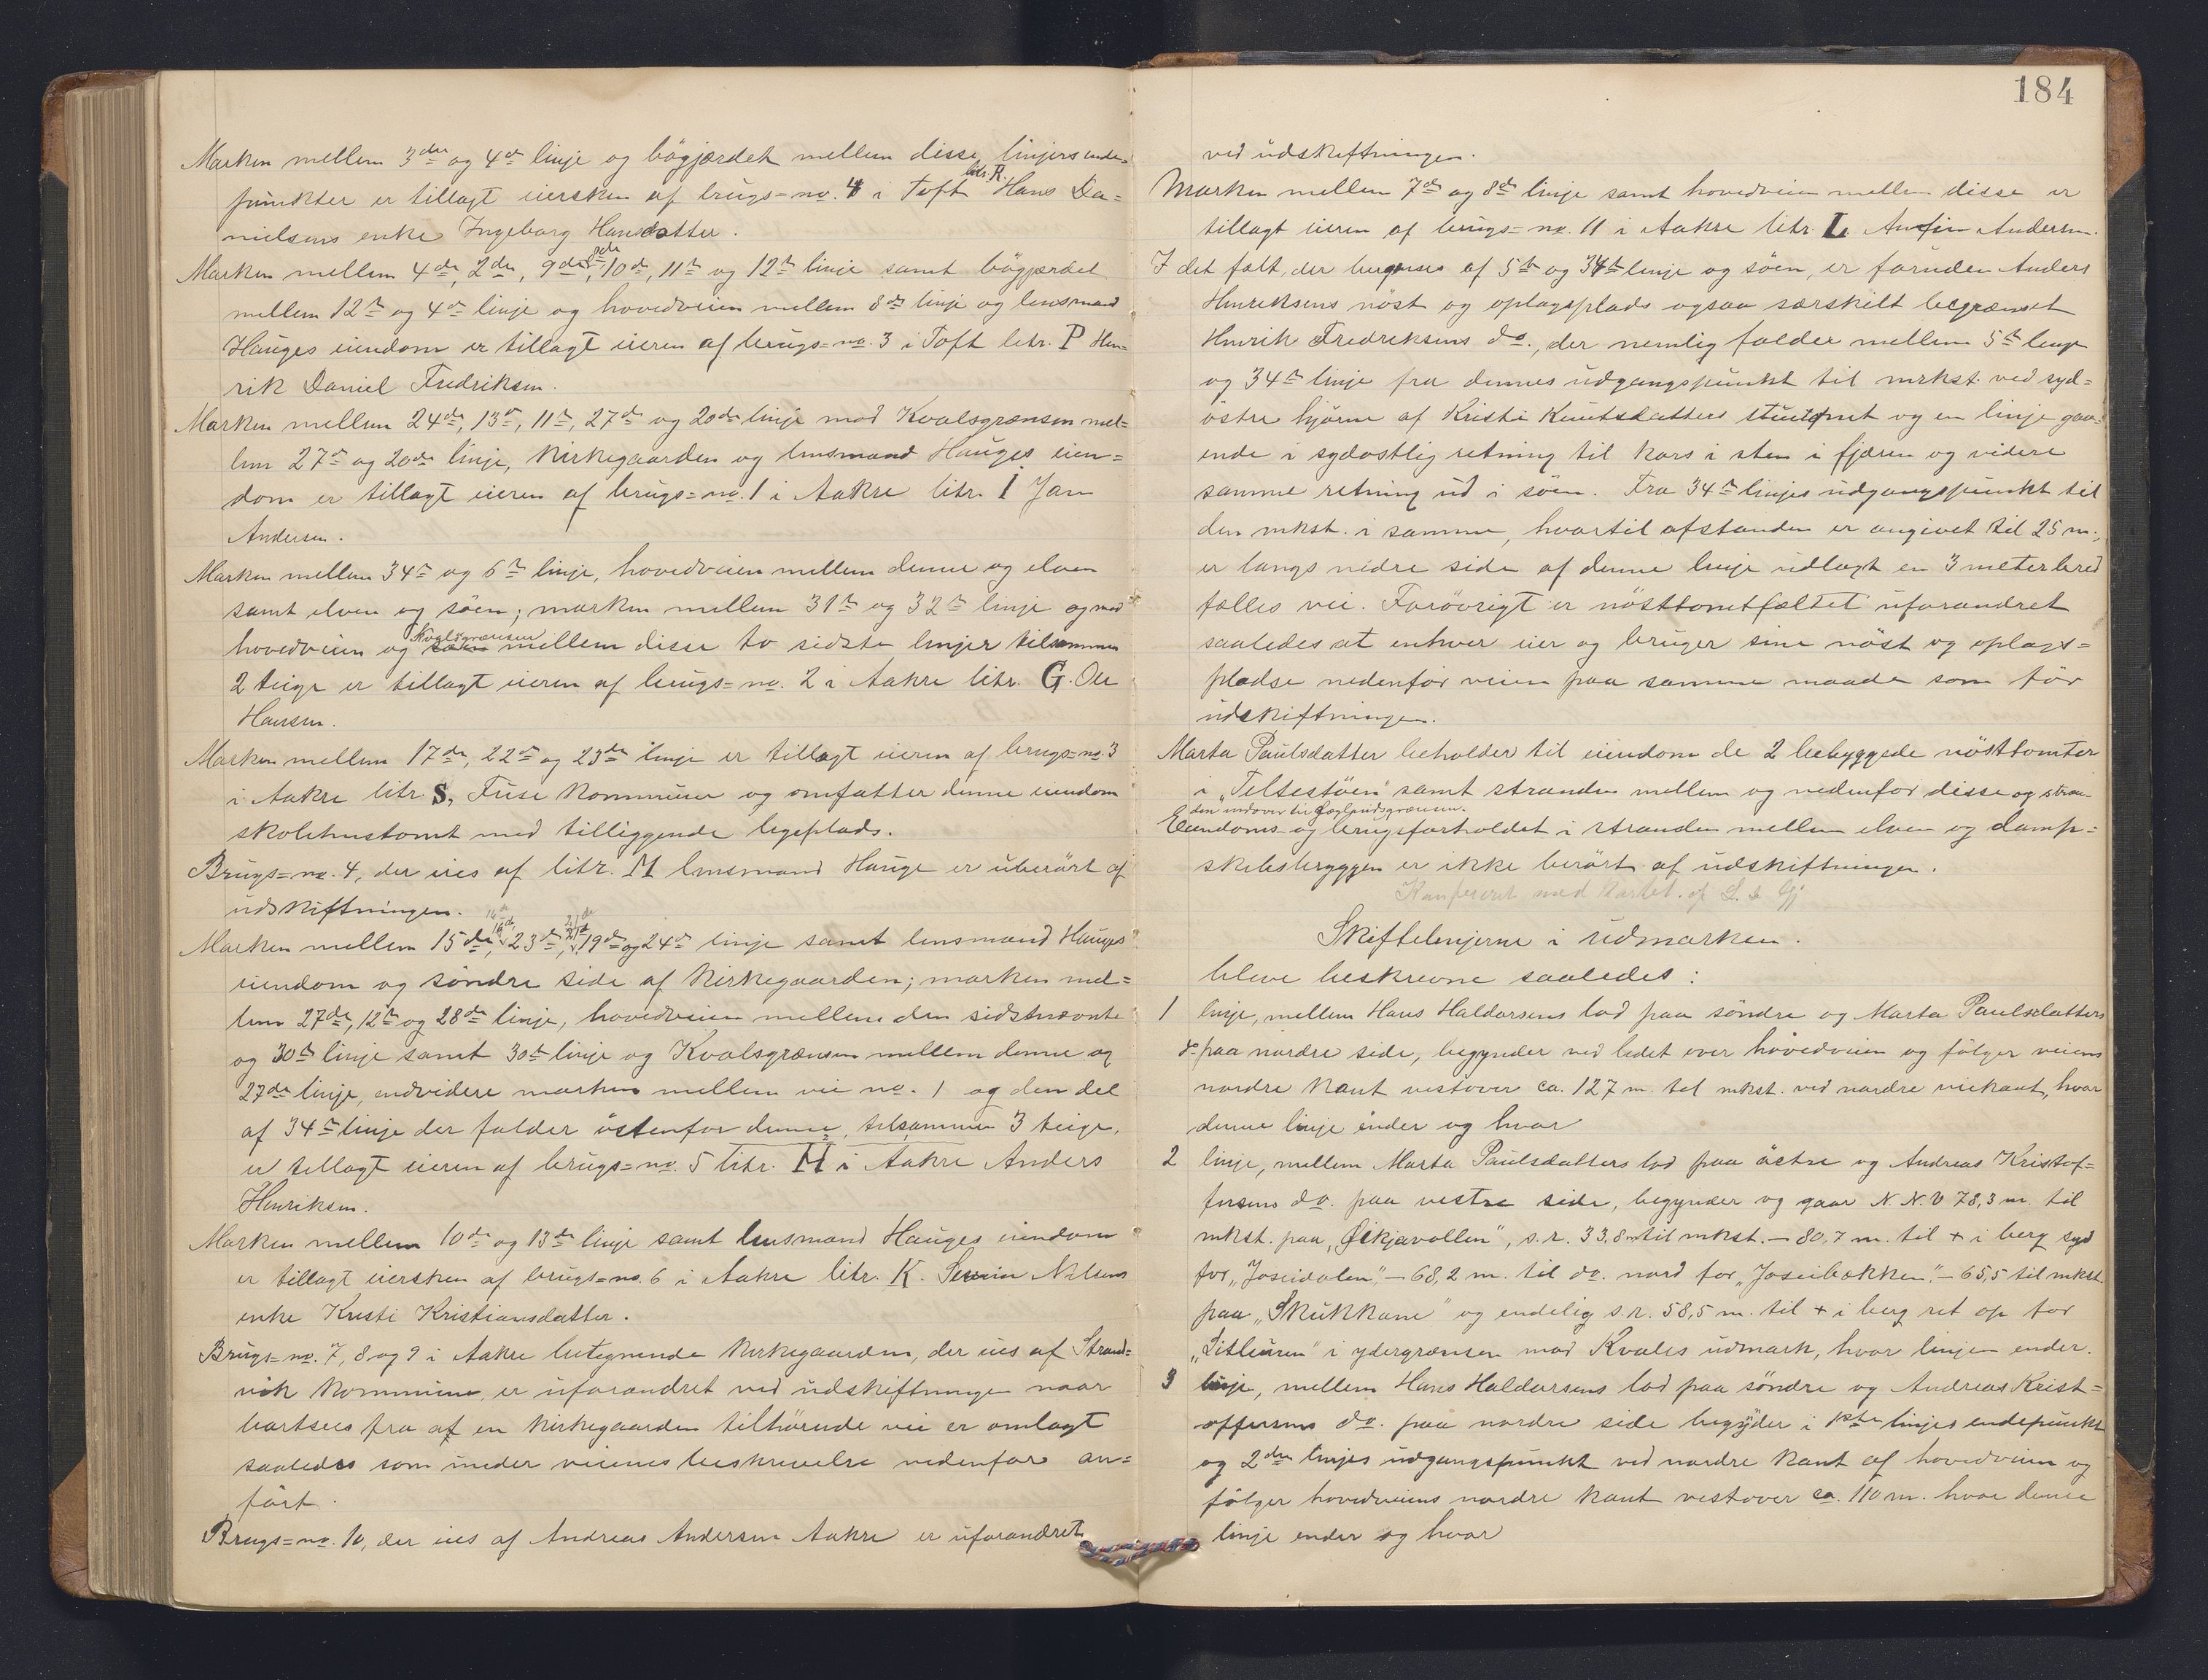 Marken mellem 3die og 4de linje og bögjærdet mellem disse linjers ende=
punkter er tillagt eiersken af brugs=no. 4 i Toft litr. R. Hans Da=
nielsens enke Ingeborg Hansdatter.
Marken mellem 4de, 2den, 9de, 8de, 10de, 11te og 12te linje samt bögjærdet
mellem 12te og 4de linje og hovedveien mellem 8de linje og lensmand
Hauges eiendom er tillagt eieren af brugs=no. 3 i Toft litr. P Hen=
rik Daniel Fredriksen.
Marken mellem 24de, 13de, 11te, 27de og 20de linje mod Kvalsgrænsen mel=
lem 27de og 20de linje, Kirkegaarden og lensmand Hauges eien=
dom er tillagt eieren af brugs=no. 1 i Aakre litr. I Jam
Andersen.
Marken mellem 34te og 6te linje, hovedveien mellem denne og elven
samt elven og söen; marken mellem 31te og 32te linje og mod
hovedveien og Kvalsgrænsen mellem disse to sidste linjer tilsammen
2 teige er tillagt eieren af brugs=no. 2 i Aakre litr. G. Ole
Hansen.
Marken mellem 17de, 22de og 23de linje er tillagt eieren af brugs=no. 3
i Aakre litr. S, Fuse Kommune og omfatter denne eiendom
skolehustomt med tilliggende legeplads.
Brugs=no. 4, der eies af litr. M lensmand Hauge er uberört af
udskiftningen.
Marken mellem 15de, 16de, 23de, 21de, 19de og 24de linje samt lensmand Hauges
eiendom og söndre side af Kirkegaarden; marken mel=
lem 27de, 12te og 28de linje, hovedveien mellem den sidstnævnte
og 30te linje samt 30te linje og Kvalsgrænsen mellem denne og
27de linje, endvidere marken mellem vei no. 1 og den del
af 34te linje der falder östenfor denne, tilsammen 3 teige,
er tillagt eieren af brugs=no. 5 litr. H i Aakre Anders
Henriksen.
Marken mellem 10de og 13de linje samt lensmand Hauges eiendom
er tillagt eiersken af brugs=no. 6 i Aakre litr. K. Severin Nilsens
enke Kristi Kristiansdatter.
Brugs=no. 7, 8 og 9 i Aakre betegnende Kirkegaarden, der eies af Strand=
vik Kommune, er uforandret ved udskiftningen naar
bortsees fra af en Kirkegaarden tilhörende vei er omlagt
saaledes som under veienes beskrivelse nedenfor an=
fört.
Brugs=no. 10, der eies af Andreas Andersen Aakre er uforandret
184
ved udskiftningen.
Marken mellem 7de og 8de linje samt hovedveien mellem disse er
tillagt eieren af brugs=no. 11 i Aakre litr. L Anfin Andersen.
I det felt, der begrænses af 5te og 34te linje og söen, er foruden Anders
Henriksens nöst og oplagsplads ogsaa særskilt begrænset
Henrik Fredriksens do., der nemlig falder mellem 5te linje
og 34te linje fra dennes udgangspunkt til mrkst. ved syd=
östre hjörne af Kristi Knutsdatters stuetomt og en linje gaa=
ende i sydostlig retning til kors i sten i fjæren og videre
samme retning ud i söen. Fra 34te linjes udgangspunkt til
den mkst. i samme, hvortil afstanden er angivet til 25 m.,
er langs nedre side af denne linje udlagt en 3 meter bred
fælles vei. Forövrigt er nösttomtfæltet uforandret
saaledes at enhver eier og bruger sine nöst og oplags=
pladse nedenfor veien paa samme maade som för
udskiftningen.
Marta Paulsdatter beholder til eiendom de 2 bebyggede nösttomter
i "Teltestöen" samt stranden mellem og nedenfor disse og stran=
den indover til Foglandsgrænsen.
Eiendoms- og brugsforholdet i stranden mellem elven og damp=
skibsbryggen er ikke berört af udskiftningen.
Konfereret med Kartet. af
Skiftelinjerne i udmarken.
bleve beskrevne saaledes:
1 linje, mellem Hans Haldorsens lod paa söndre og Marta Paulsdatters
do. paa nordre side, begynder ved ledet over hovedveien og fölger veiens
nordre kant vestover ca. 127 m. til mkst. ved nordre veikant, hvor
denne linje ender og hvor
2 linje, mellem Marta Paulsdatters lod paa östre og Andreas Kristof=
fersens do. paa vestre side, begynder og gaar N. N. V 78,3 m. til
mkst. paa "Öikjavollen", s. r. 33,8 m til mkst. — 80,7 m. til + i berg syd
for "Joseidalen", — 68,2 m. til do. nord for "Joseibækken", — 65,5 til mkst.
paa "Skukkane" og endelig s. r. 58,5 m. til + i berg ret op for
"Litleuren" i ydergrænsen mod Kvales udmark, hvor linjen ender.
3 linje, mellem Hans Haldorsens lod paa söndre og Andreas Krist=
offersens do. paa nordre side begynder i 1ste linjes endepunkt
og 2den linjes udgangspunkt ved nordre kant af hovedveien og
fölger hovedveiens nordre kant vestover ca. 110 m. hvor denne
linje ender og hvor